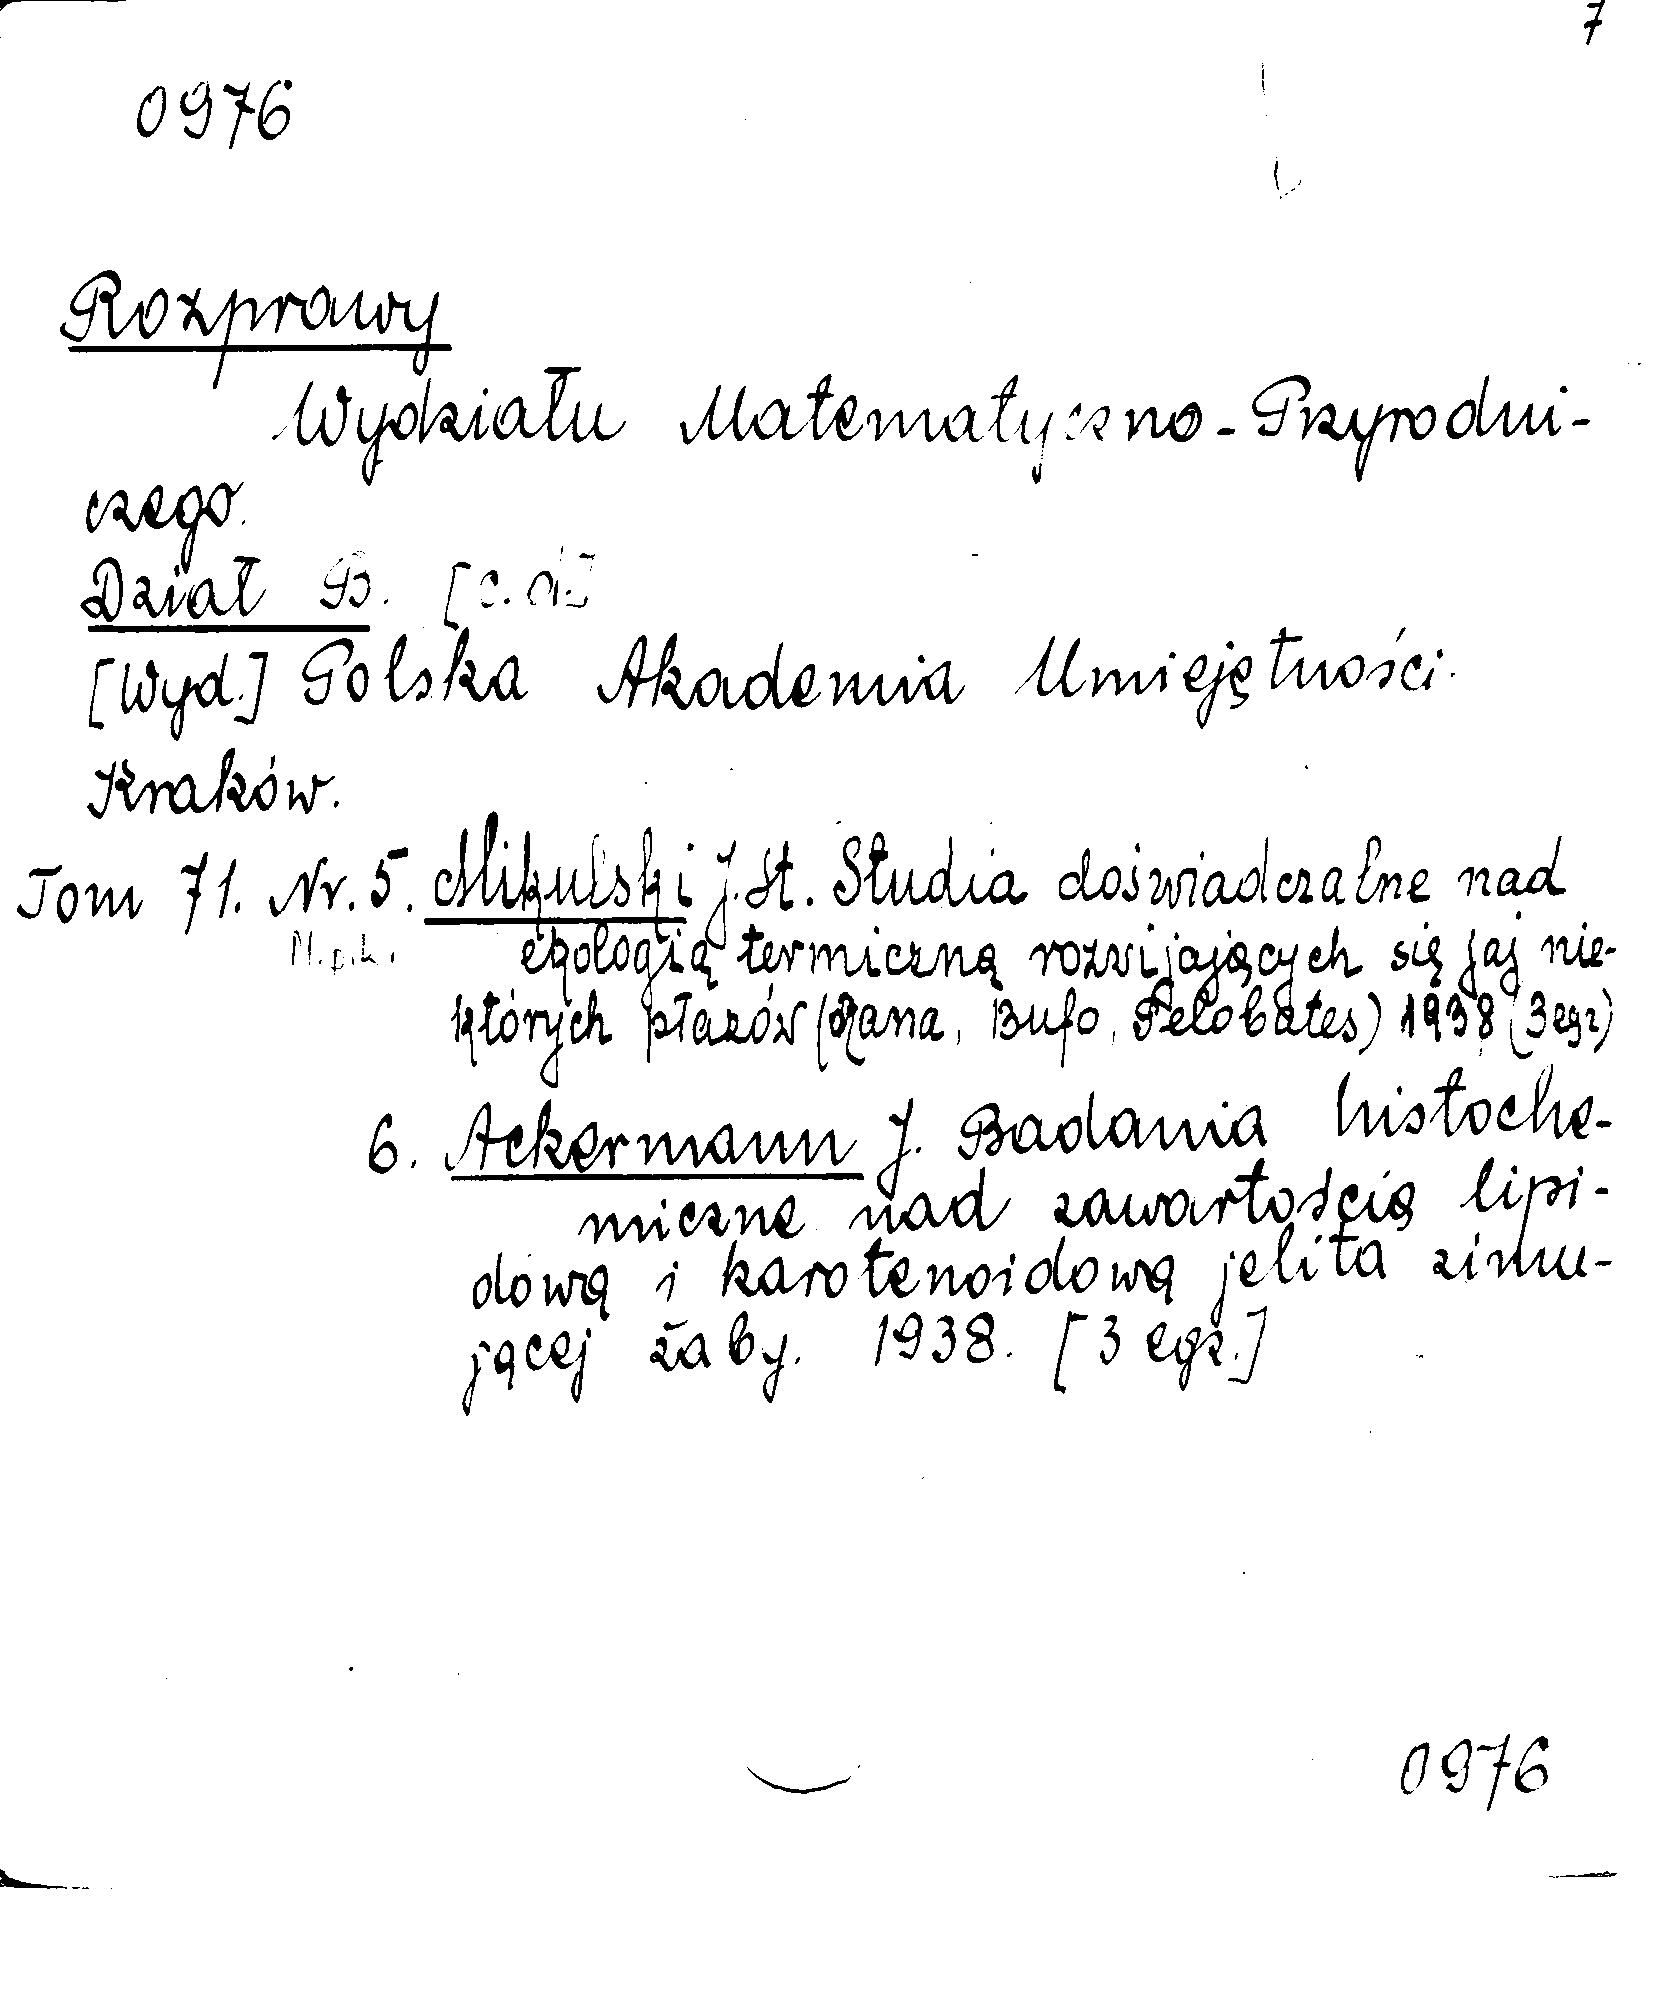 7
0976
Rozprawy
Wydziału Matematyczno-Przyrodni-
czego.
Dział B. [c.d.]
[Wyd.] Polska Akademia Umiejętności.
Kraków.
Tom 71. Nr. 5. Mikulski J. St. Studia doświadczalne nad
ekologią termiczną rozwijających się jaj nie-
których płazów (Rana, Bufo, Pelobates) 1938 (3 egz)
6. Ackermann J. Badania histoche-
miczne nad zawartością lipi-
dową i karotenoidową jelita zimu-
jącej żaby. 1938. [3 egz.]
0976